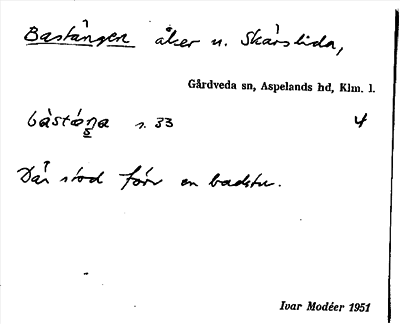 Bastången åker u. Skärslida,
Gårdveda sn, Aspelands hd, Klm. l.
bàstáṇa s. 33 4
s
Där stod förr en badstu.
Ivar Modéer 1951